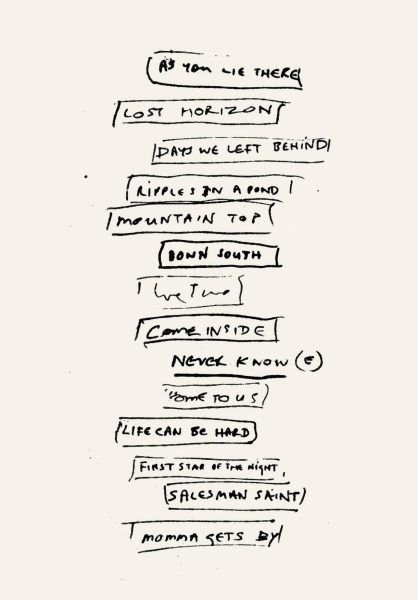 AS YOU LIE THERE
LOST HORIZON
DAYS WE LEFT BEHIND
RIPPLES IN A POND
MOUNTAIN TOP
DOWN SOUTH
We Two
COME INSIDE
NEVER KNOW (E)
HOME TO US
LIFE CAN BE HARD
FIRST STAR OF THE NIGHT
SALESMAN SAINT
MOMMA GETS BY